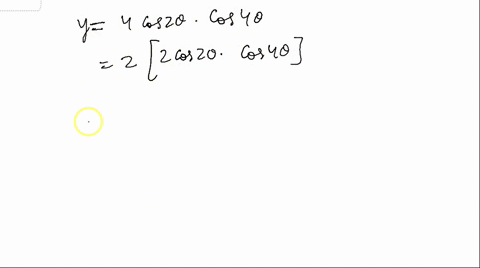 y= 4 cos2θ. cos4θ
= 2 [2cos2θ. cos4θ]